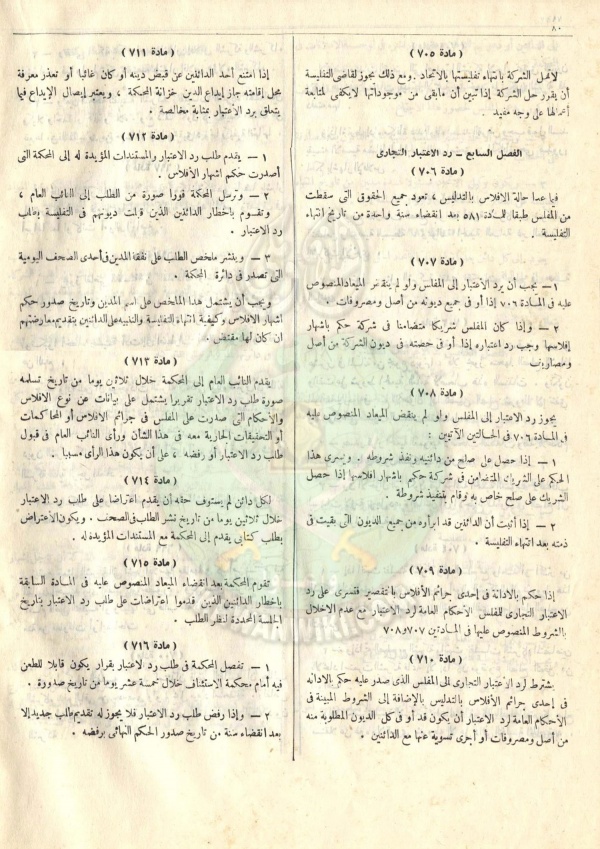 ٨٠
( مادة ٧٠٥ )
لاتحل الشركة بانتهاء تفليستها بالاتحاد . ومع ذلك يجوز لقاضى التفليسة
أن يقرر حل الشركة إذا تبين أن مابقى من موجوداتها لايكفى لمتابعة
أعمالها على وجه مفيد .
الفصل السابع – رد الاعتبار التجارى
( مادة ٧٠٦ )
فيما عدا حالة الافلاس بالتدليس ، تعود جميع الحقوق التى سقطت
من المفلس طبقا للمادة ٥٨١ بعد انقضاء سنة واحدة من تاريخ انتهاء
التفليسة .
( مادة ٧٠٧ )
١ – يجب أن يرد الاعتبار إلى المفلس ولو لم ينقض الميعاد المنصوص
عليه فى المادة ٧٠٦ إذا أو فى جميع ديونه من أصل ومصروفات .
٢ – وإذا كان المفلس شريكا متضامنا فى شركة حكم باشهار
إفلاسها وجب رد اعتباره إذا أو فى حصته فى ديون الشركة من أصل
ومصاريف
( مادة ٧٠٨ )
يجوز رد الاعتبار إلى المفلس ولو لم ينقض الميعاد المنصوص عليه
فى المادة ٧٠٦ فى الحالتين الآتيتين :
١ – إذا حصل على صلح من دائنيه ونفذ شروطه . ويسرى هذا
الحكم على الشريك المتضامن فى شركة حكم باشهار افلاسها إذا حصل
الشريك على صلح خاص به وقام بتنفيذ شروطة .
٢ – إذا أثبت أن الدائنين قد ابرأوه من جميع الديون التى بقيت فى
ذمته بعد انتهاء التفليسة .
( مادة ٧٠٩ )
إذا حكم بالادانة فى إحدى جرائم الأفلاس بالتقصير فتسرى على رد
الاعتبار التجارى للمفلس الأحكام العامة لرد الاعتبار مع عدم الاخلال
بالشروط المنصوص عليها فى المادتين ٧٠٧ و٧٠٨
( مادة ٧١٠ )
يشترط لرد الاعتبار التجارى إلى المفلس الذى صدر عليه حكم بالادانه
فى إحدى جرائم الأفلاس بالتدليس بالإضافة إلى الشروط المبينة فى
الأحكام العامة لرد الاعتبار أن يكون قد أو فى كل الديون المطلوبة منه
من أصل ومصروفات أو أجرى تسوية عنها مع الدائنين .
( مادة ٧١١ )
إذا امتنع أحد الدائنين عن قبض دينه أو كان غائبا أو تعذر معرفة
محل إقامته جاز إيداع الدين خزانة المحكمة ، ويعتبر إيصال الإيداع فيما
يتعلق برد الاعتبار بمثابة مخالصة .
( مادة ٧١٢ )
١ – يقدم طلب رد الاعتبار والمستندات المؤيدة له إلى المحكمة التى
أصدرت حكم اشهار الأفلاس .
٢ – وترسل المحكمة فورا صورة من الطلب إلى النائب العام ،
وتقوم باخطار الدائنين الذين قبلت ديونهم فى التفليسة بطلب
رد الاعتبار .
٣ – وينشر ملخص الطلب على نفقة المدين فى أحدى الصحف اليومية
التى تصدر فى دائرة المحكمة .
ويجب أن يشتمل هذا الملخص على اسم المدين وتاريخ صدور حكم
اشهار الافلاس وكيفية انتهاء التفليسة والتنبيه على الدائنين بتقديم معارضتهم
ان كان لها مقتض .
( مادة ٧١٣ )
يقدم النائب العام إلى المحكمة خلال ثلاثين يوما من تاريخ تسلمه
صورة طلب رد الاعتبار تقريرا يشتمل على بيانات عن نوع الافلاس
والأحكام التى صدرت على المفلس فى جرائم الافلاس أو المحاكمات
أو التحقيقات الجارية معه فى هذا الشأن ورأى النائب العام فى قبول
طلب رد الاعتبار أو رفضه ، على أن يكون هذا الرأى مسببا .
( مادة ٧١٤ )
لكل دائن لم يستوف حقه أن يقدم اعتراضا على طلب رد الاعتبار
خلال ثلاثين يوما من تاريخ نشر الطلب فى الصحف . ويكون الاعتراض
بطلب كتابى يقدم إلى المحكمة مع المستندات المؤيدة له .
( مادة ٧١٥ )
تقوم المحكمة بعد انقضاء الميعاد المنصوص عليه فى المادة السابقة
باخطار الدائنين الذين قدموا اعتراضات على طلب رد الاعتبار بتاريخ
الجلسة المحددة لنظر الطلب .
( مادة ٧١٦ )
١ – تفصل المحكمة فى طلب رد الاعتبار بقرار يكون قابلا للطعن
فيه أمام محكمة الاستئناف خلال خمسة عشر يوما من تاريخ صدورة .
٢ – وإذا رفض طلب رد الاعتبار فلا يجوز له تقديم طلب جديد إلا
بعد انقضاء سنة من تاريخ صدور الحكم النهائى برفضه .